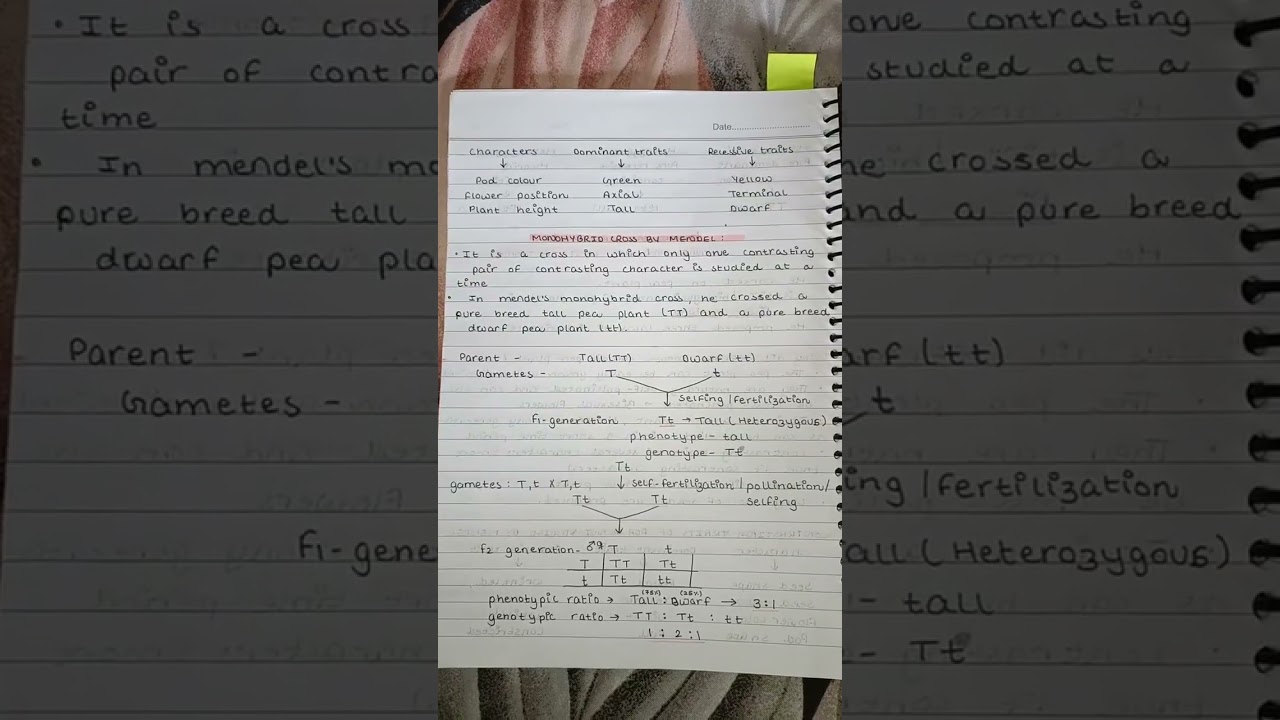 Date..............................
Characters Dominant traits Recessive traits
↓ ↓ ↓
Pod colour Green Yellow
Flower position Axial Terminal
Plant height Tall Dwarf
MONOHYBRID CROSS BY MENDEL:
• It is a cross in which only one contrasting
pair of contrasting character is studied at a
time
• In mendel's monohybrid cross, he crossed a
pure breed tall pea plant (TT) and a pure breed
dwarf pea plant (tt).
Parent - Tall(TT) Dwarf(tt)
Gametes - T t
↓ selfing/fertilization
F1-generation Tt → Tall (Heterozygous)
phenotype - tall
genotype - Tt
Tt
gametes: T,t X T,t ↓ self-fertilization/pollination/
Tt Tt selfing
F2 generation- ♂♀ T t
T TT Tt
t Tt tt
(75%) (25%)
phenotypic ratio → Tall : Dwarf → 3:1
genotypic ratio → TT : Tt : tt
1 : 2 : 1
• It is a cross
pair of contra
time
• In mendel's mo
pure breed tall
dwarf pea pla
Parent -
Gametes -
F1-gene
one contrasting
studied at a
he crossed a
and a pure breed
arf(tt)
t
ing/fertilization
all (Heterozygous)
- tall
- Tt